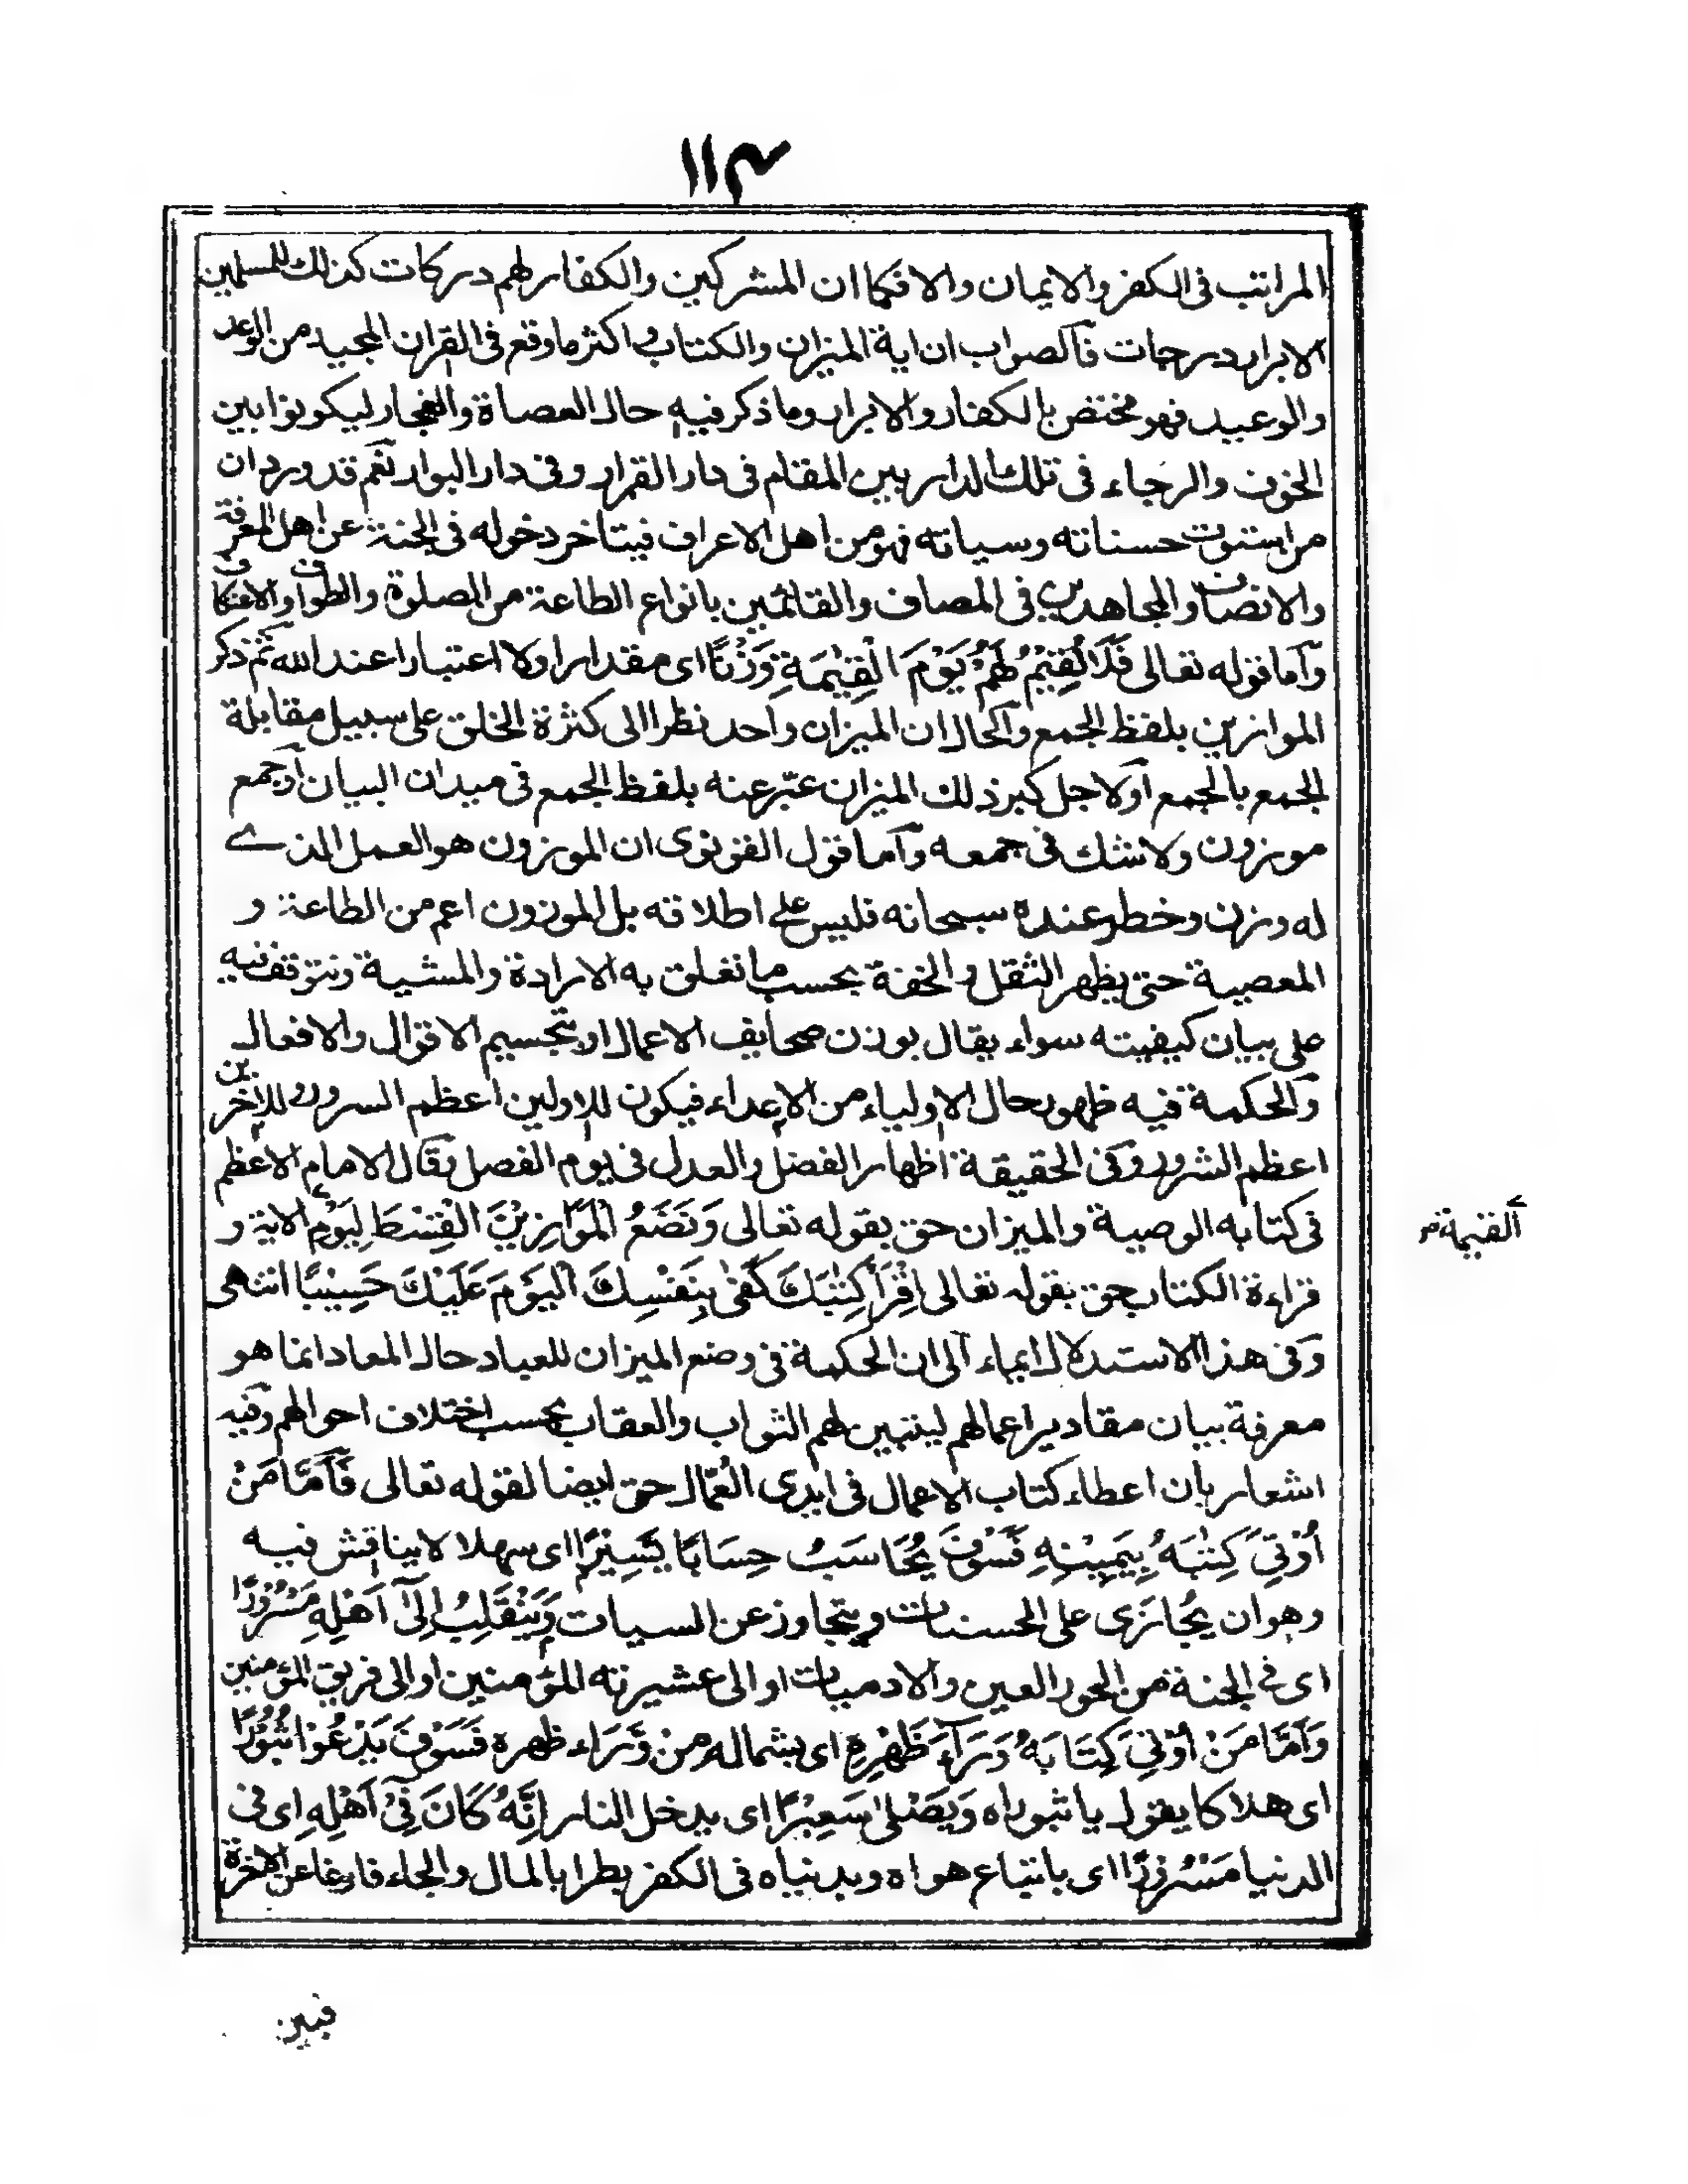 ١١٤
المراتب فى الكفر والايمان والا فكما ان المشركين والكفار لهم دركات كذلك للمسلمين
الابرار درجات فالصواب ان اية الميزان والكتاب و اكثر ما وقع فى القران المجيد من الوعد
والوعيد فهو مختص بالكفار والابرار وما ذكر فيه حال العصاة والفجار ليكونوا بين
الخوف والرجاء فى تلك الدار بين المقام فى دار القرار وفى دار البوار نعم قد ورد ان
من استوت حسناته وسياته فهو من اهل الاعراف فيتاخر دخوله فى الجنة عن اهل المعرفة
والانصاف والمجاهدين فى المصاف والقائمين بانواع الطاعة من الصلوة والطواف والاعتكاف
وآما قوله تعالى فَلَا نُقِيْمُ لَهُمْ يَوْمَ الْقِيٰمَةِ وَزْنًا اى مقدارا ولا اعتبارا عند الله ثم ذكر
الموازين بلفظ الجمع والحال ان الميزان واحد نظرا الى كثرة الخلق على سبيل مقابلة
الجمع بالجمع اولاجل كبر ذلك الميزان عبّر عنه بلفظ الجمع فى ميدان البيان اوجمع
موزون ولا شك فى جمعه وآما قول القونوى ان الموزون هو العمل الذے
له وزن وخطر عنده سبحانه فليس علے اطلاقه بل الموزون اعم من الطاعة و
المعصية حتى يظهر الثقل والخفة بحسب ما تعلق به الارادة والمشية ونتوقف فيه
على بيان كيفيته سواء يقال بوزن صحايف الاعمال او بتجسيم الاقوال والافعال
والحكمة فيه ظهور حال الاولياء من الاعداء فيكون للاولين اعظم السرور وللاخرين
اعظم الشرور وفى الحقيقة اظهار الفضل والعدل فى يوم الفصل وقال الامام الاعظم
فى كتابه الوصية والميزان حق بقوله تعالى وَنَضَعُ الْمَوَازِيْنَ الْقِسْطَ لِيَوْمِ الاية و
القيمة
قراءة الكتاب حق بقوله تعالى اِقْرَأْ كِتٰبَكَ كَفٰى بِنَفْسِكَ الْيَوْمَ عَلَيْكَ حَسِيْبًا انتهى
وفى هذا الاستدلال ايماء الى ان الحكمة فى وضع الميزان للعباد حال المعاد انما هو
معرفة بيان مقادير اعمالهم ليتبين لهم الثواب والعقاب بحسب اختلاف احوالهم وفيه
اشعار بان اعطاء كتاب الاعمال فى ايدى العُمّال حق ايضا لقوله تعالى فَآمَّا مَنْ
اُوْتِيَ كِتٰبَهٗ بِيَمِيْنِهٖ فَسَوْفَ يُحَاسَبُ حِسَابًا يَّسِيْرًا اى سهلا لا يناقش فيه
وهو ان يُجازى على الحسنات ويتجاوز عن السيات وَيَنْقَلِبُ اِلٰٓى اَهْلِهٖ مَسْرُوْرًا
اى فى الجنة من الحور العين والادميات او الى عشيرته المؤمنين او الى فريق المؤمنين
وَاَمَّا مَنْ اُوْتِيَ كِتَابَهٗ وَرَآءَ ظَهْرِهٖ اى بشماله من وَّرَاء ظهره فَسَوْفَ يَدْعُوْا ثُبُوْرًا
اى هلاكا يقول يا ثبوراه وَيَصْلٰى سَعِيْرًا اى يدخل النار اِنَّهٗ كَانَ فِيْٓ اَهْلِهٖ اى فى
الدنيا مَسْرُوْرًا اى باتباع هواه وبدنياه فى الكفر بطرا بالمال والجاه فارغا عن الاخرة